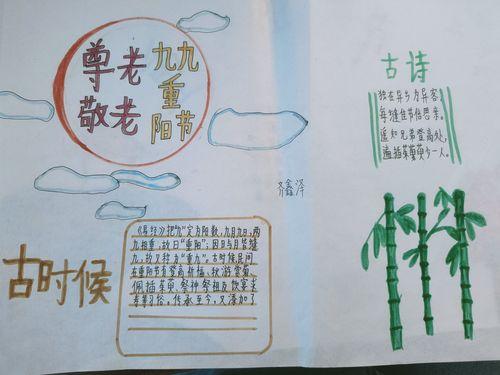 尊老
敬老
九九
重
阳节
古诗
独在异乡为异客，
每逢佳节倍思亲。
遥知兄弟登高处，
遍插茱萸少一人。
齐鑫泽
古时候
《易经》把"九"定为阳数，九月九日，两
九相重，故曰"重阳"；因日与月皆逢
九，故又称为"重九"。古时候民间
在重阳节有登高祈福、秋游赏菊、
佩插茱萸、祭神祭祖及饮宴求
寿等习俗。传承至今，又添加了